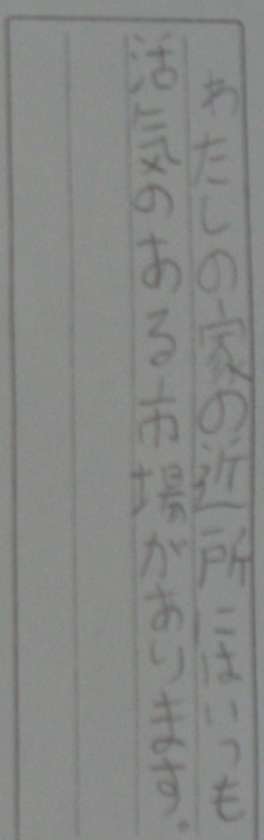 わたしの家の近所にはいつも
活気のある市場があります。